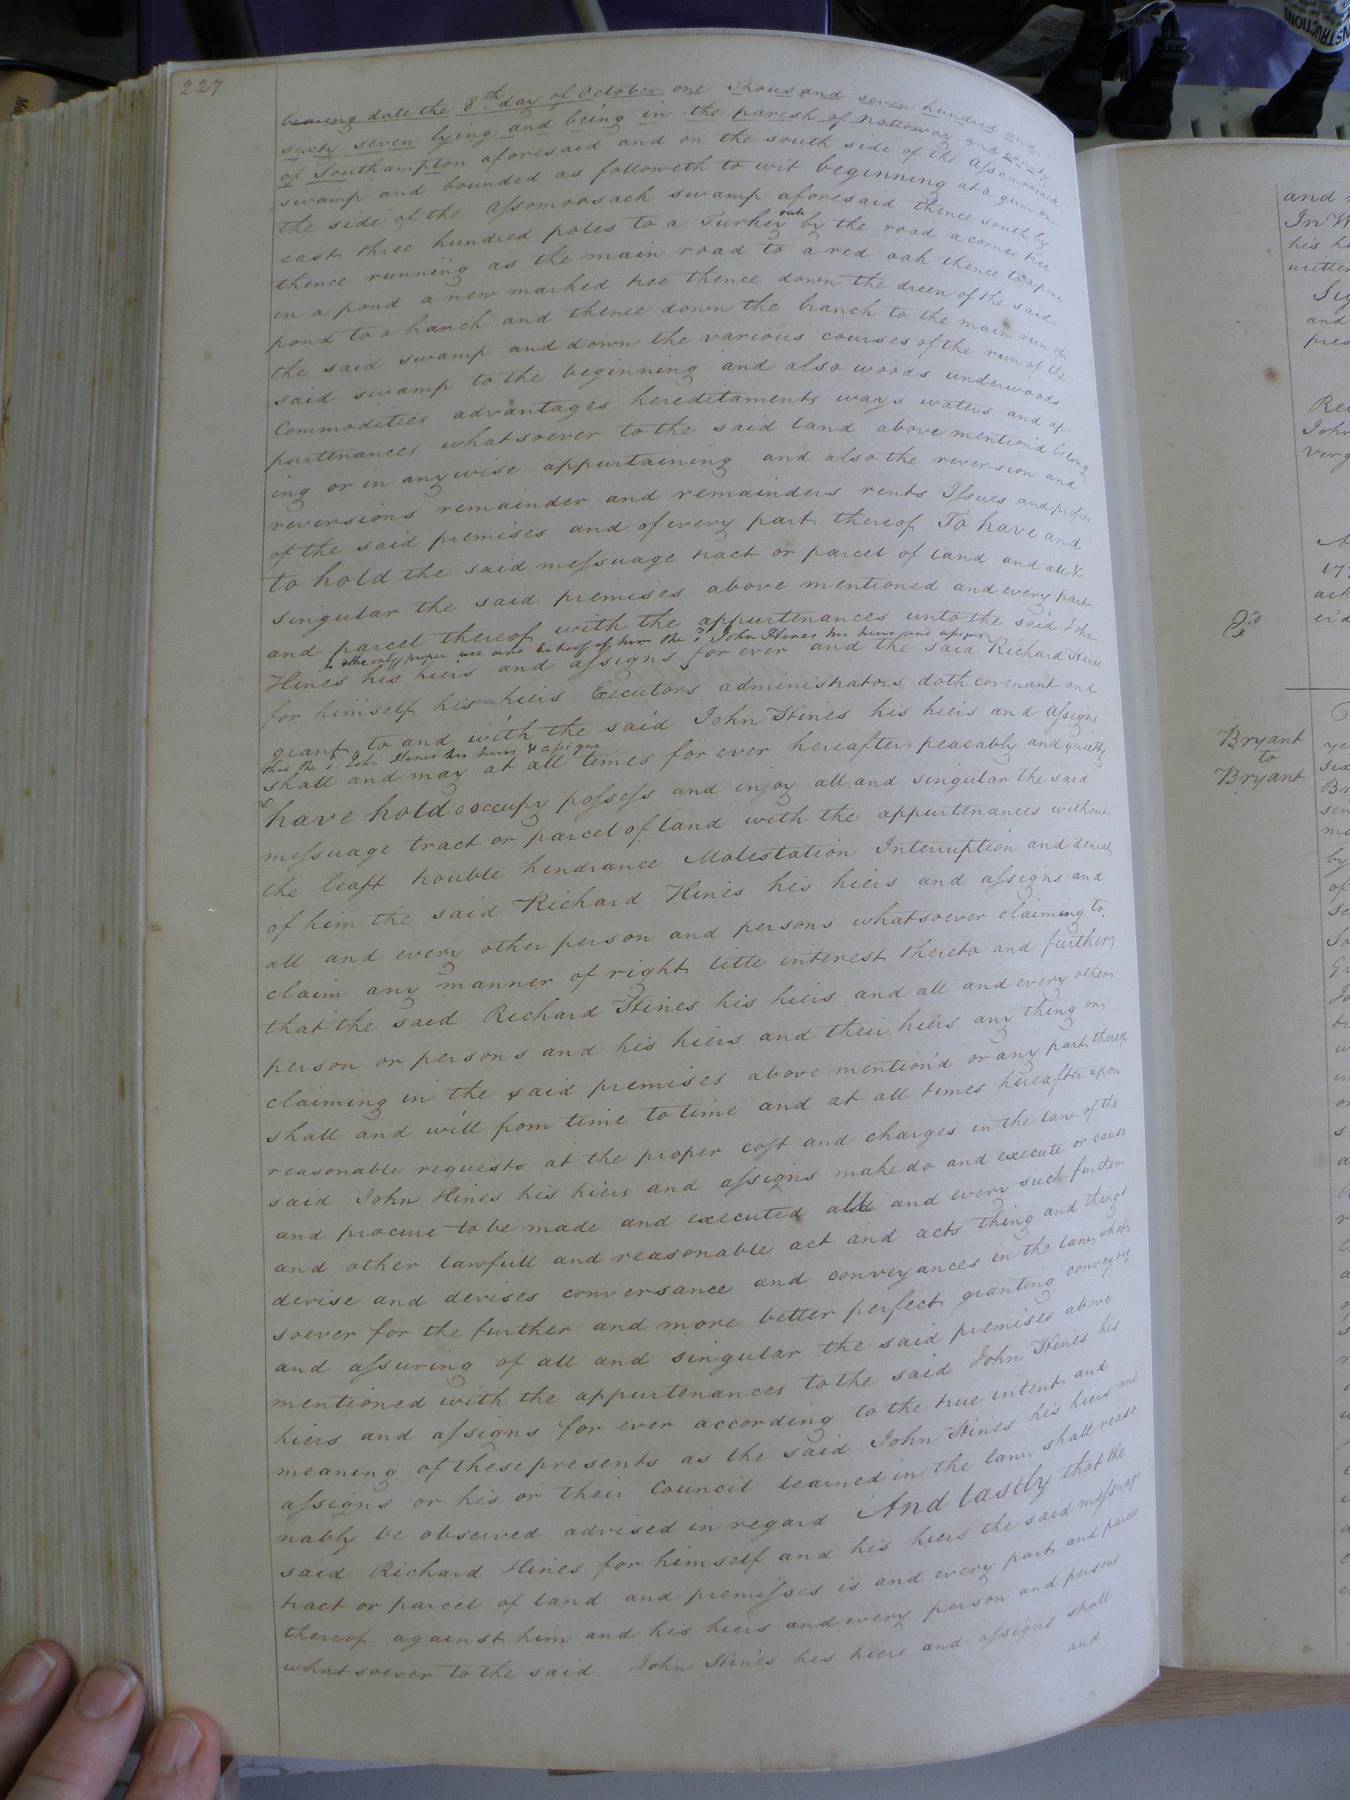 227
bearing date the 8th day of October one thousand seven hundred and
sixty seven lying and being in the parish of Nottoway and County
of Southampton aforesaid and on the south side of the Assamoosack
swamp and bounded as followeth to wit beginning at a gum on
the side of the Assomoosack swamp aforesaid thence south by
east three hundred poles to a Turkey oak by the road a corner tree
thence running as the main road to a red oak thence to a pine
in a pond a new marked tree thence down the dreen of the said
pond to a branch and thence down the branch to the main run of
the said swamp and down the various courses of the run of the
said swamp to the beginning and also woods underwoods
Commodities advantages hereditaments ways waters and ap-
purtenances whatsoever to the said land above mention'd belong
ing or in any wise appurtaining and also the reversion and
reversions remainder and remainders rents Issues and profits
of the said premises and of every part thereof To have and
to hold the said messuage tract or parcel of land and all &
singular the said premises above mentioned and every part
and parcel thereof with the appurtenances unto the said John
to the only proper use and behoof of him the sd John Hines his heirs and assigns
Hines his heirs and assigns for ever and the said Richard Hines
for himself his heirs Executors administrators doth covenant and
grant to and with the said John Hines his heirs and assigns
that the sd John Hines his heirs & assigns
shall and may at all times for ever hereafter peacably and quietly
& have hold occupy possess and enjoy all and singular the said
messuage tract or parcel of land with the appurtenances without
the least trouble hindrance Molestation Interruption and denial
of him the said Richard Hines his heirs and assigns and
all and every other person and persons whatsoever claiming to
claim any manner of right title interest thereto and further
that the said Richard Hines his heirs and all and every other
person or persons and his heirs and their heirs any thing or
claiming in the said premises above mention'd or any part thereof
shall and will from time to time and at all times hereafter upon
reasonable requests at the proper cost and charges in the law of the
said John Hines his heirs and assigns make do and execute or cause
and procure to be made and executed all and every such further
and other lawfull and reasonable act and acts thing and things
devise and devises conversance and conveyances in the law whats
soever for the further and more better perfect granting conveying
and assuring of all and singular the said premises above
mentioned with the appurtenances to the said John Hines his
heirs and assigns for ever according to the true intent and
meaning of these presents as the said John Hines his heirs and
assigns or his or their Council learned in the law shall reaso
nably be observed advised in regard And lastly that the
said Richard Hines for himself and his heirs the said messuage
tract or parcel of land and premisses is and every part and parcel
thereof against him and his heirs and every person and persons
whatsoever to the said John Hines his heirs and assigns shall
and
and
In W
his h
written
Sig
and
pres
Rec
John
verg
177
ack
er'd
Bryant
to
Bryant